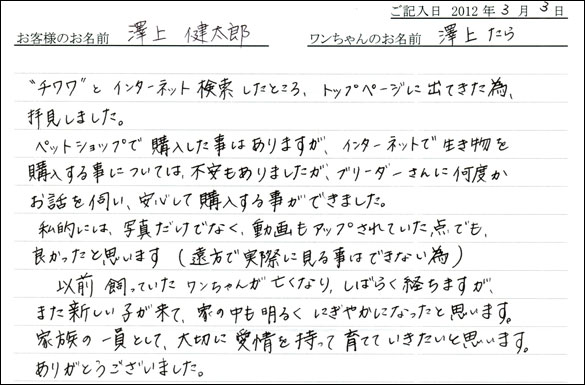 ご記入日 2012 年 3 月 3 日
お客様のお名前 澤上 健太郎 ワンちゃんのお名前 澤上 たら
"チワワ"と インターネット 検索したところ、トップページに 出てきた為、
拝見しました。
ペットショップで 購入した事はありますが、インターネットで 生き物を
購入する事については、不安もありましたが、ブリーダーさんに何度か
お話を伺い、安心して購入する事ができました。
私的には、写真だけでなく、動画もアップされていた点でも、
良かったと思います(遠方で実際に見る事はできない為)
以前 飼っていた ワンちゃんが 亡くなり、しばらく経ちますが、
また新しい子が来て、家の中も明るく にぎやかになったと思います。
家族の一員として、大切に愛情を持って育てていきたいと思います。
ありがとうございました。